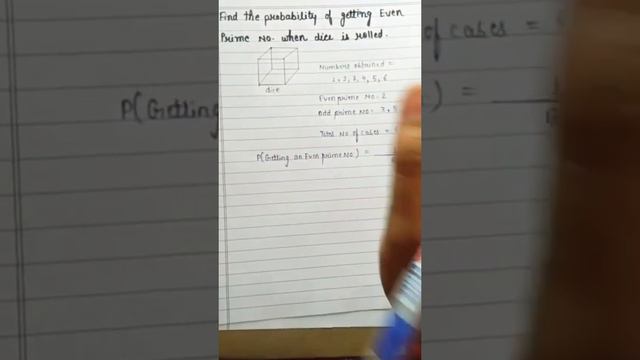 Find the probability of getting Even
Prime No. when dice is rolled.
Numbers obtained =
1, 2, 3, 4, 5, 6
dice
Even prime No. = 2
Odd prime No. = 3, 5
Total No of cases =
P(Getting an Even prime No) =
of cases =
P(Getting
) =